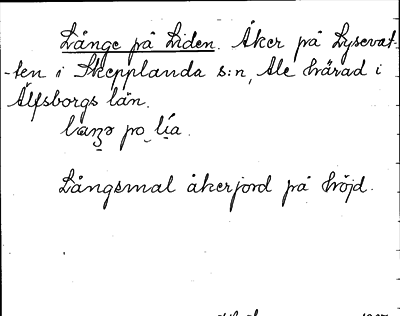 Långe på Liden. Åker på Lysevat-
-ten i Skepplanda s:n, Ale härad i
Älfsborgs län.
laŋə po lia.
Långsmal åkerjord på höjd.